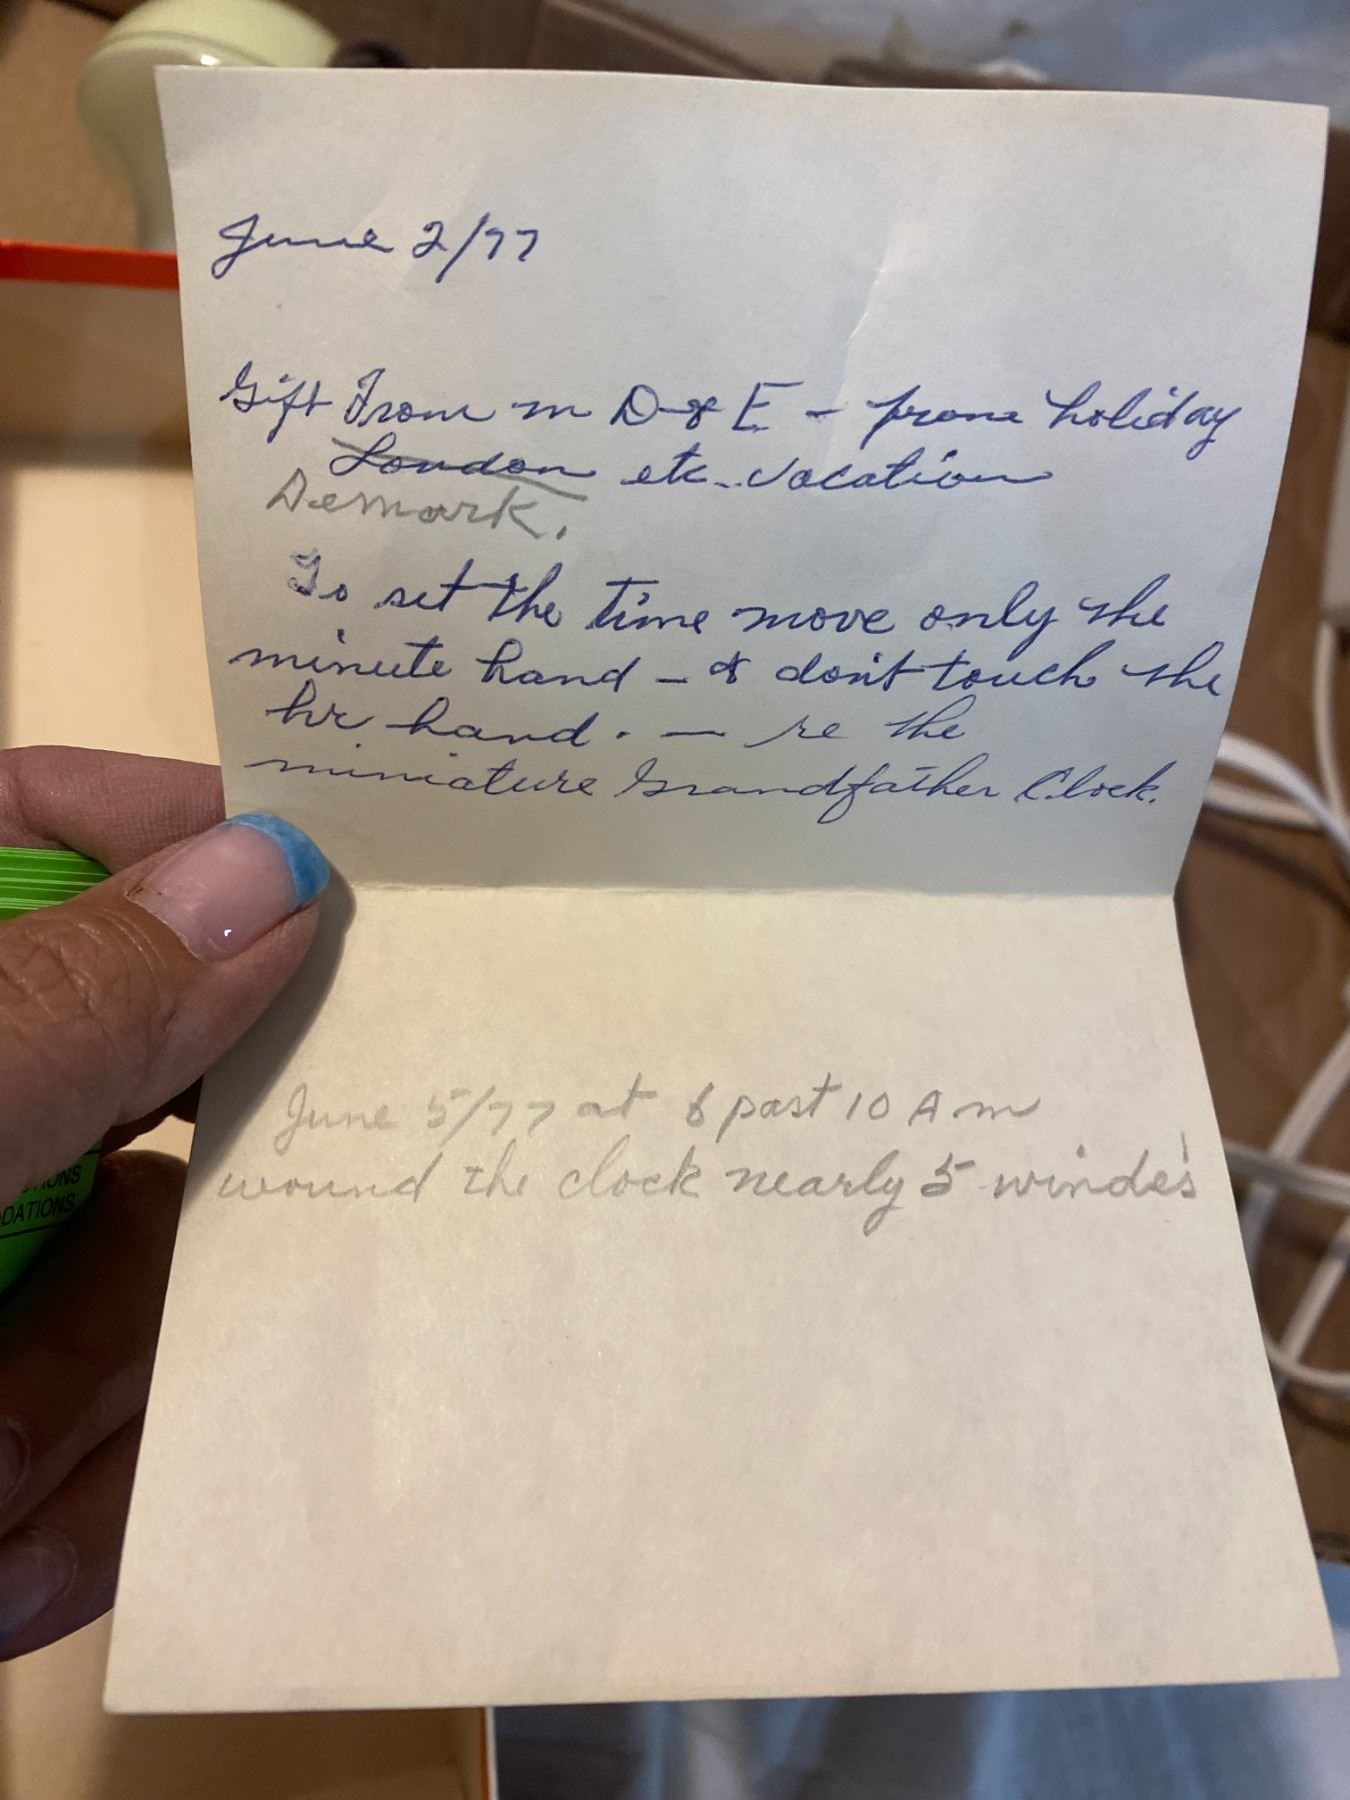 June 2/77
Gift From m D & E - frome holiday
London etc. vacation
Demark.
To set the time move only the
minute hand - & don't touch the
hr hand. - re the
miniature Grandfather Clock.
June 5/77 at 6 past 10 A m
wound the clock nearly 5 windes
IONS
DATIONS